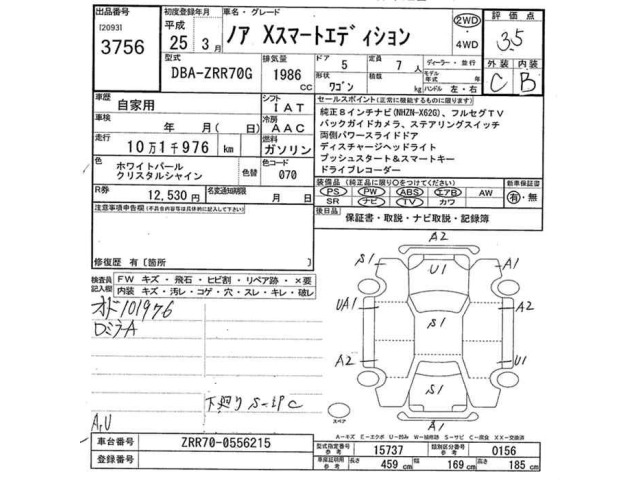 出品番号
[2093]
3756
初度登録年月
平成
25年 3月
車名・グレード
ノア Xスマートエディション
2WD
・
4WD
評価点
3.5
外装 内装
C B
型式
DBA-ZRR70G
排気量
1986 cc
ドア 5
形状 ワゴン
定員 7 人
積載 kg
ディーラー・並行
モデル年式 年
ハンドル 左・右
車歴
自家用
シフト
IAT
車検
年 月(日)
冷房
AAC
走行
10万1千976 km
燃料
ガソリン
色
ホワイトパール
クリスタルシャイン
色替
色コード
070
R券
12,530円
名変通知期限
月 日
セールスポイント(正常に機能するものに限ります)
純正8インチナビ(NHZN-X62G)、フルセグTV
バックガイドカメラ、ステアリングスイッチ
両側パワースライドドア
ディスチャージヘッドライト
プッシュスタート&スマートキー
ドライブレコーダー
装備品(純正品に限り○をつけてください)
PS PW ABS エアB AW
SR ナビ TV カワ
新車保証書
有・無
後日品
保証書・取説・ナビ取説・記録簿
注意事項申告欄(不具合内容等は具体的に記入して下さい)
修復歴 有[箇所 ]
検査員記入欄
FW キズ・飛石・ヒビ割・リペア跡・×要
内装 キズ・汚レ・コゲ・穴・スレ・キレ・破レ
オド101976
DミラーA
下廻りS
C
A,U
A2
S1
U1
A1
UA1
S1
A2
U1
S1
A1
スペア
A－キズ E－エクボ U－凹み W－補修跡 S－サビ C－腐食 XX－交換済
車台番号
ZRR70-0556215
登録番号
型式指定番号 参考 15737
類別区分番号 参考 0156
車庫証明用 参考 長さ 459 cm 幅 169 cm 高さ 185 cm